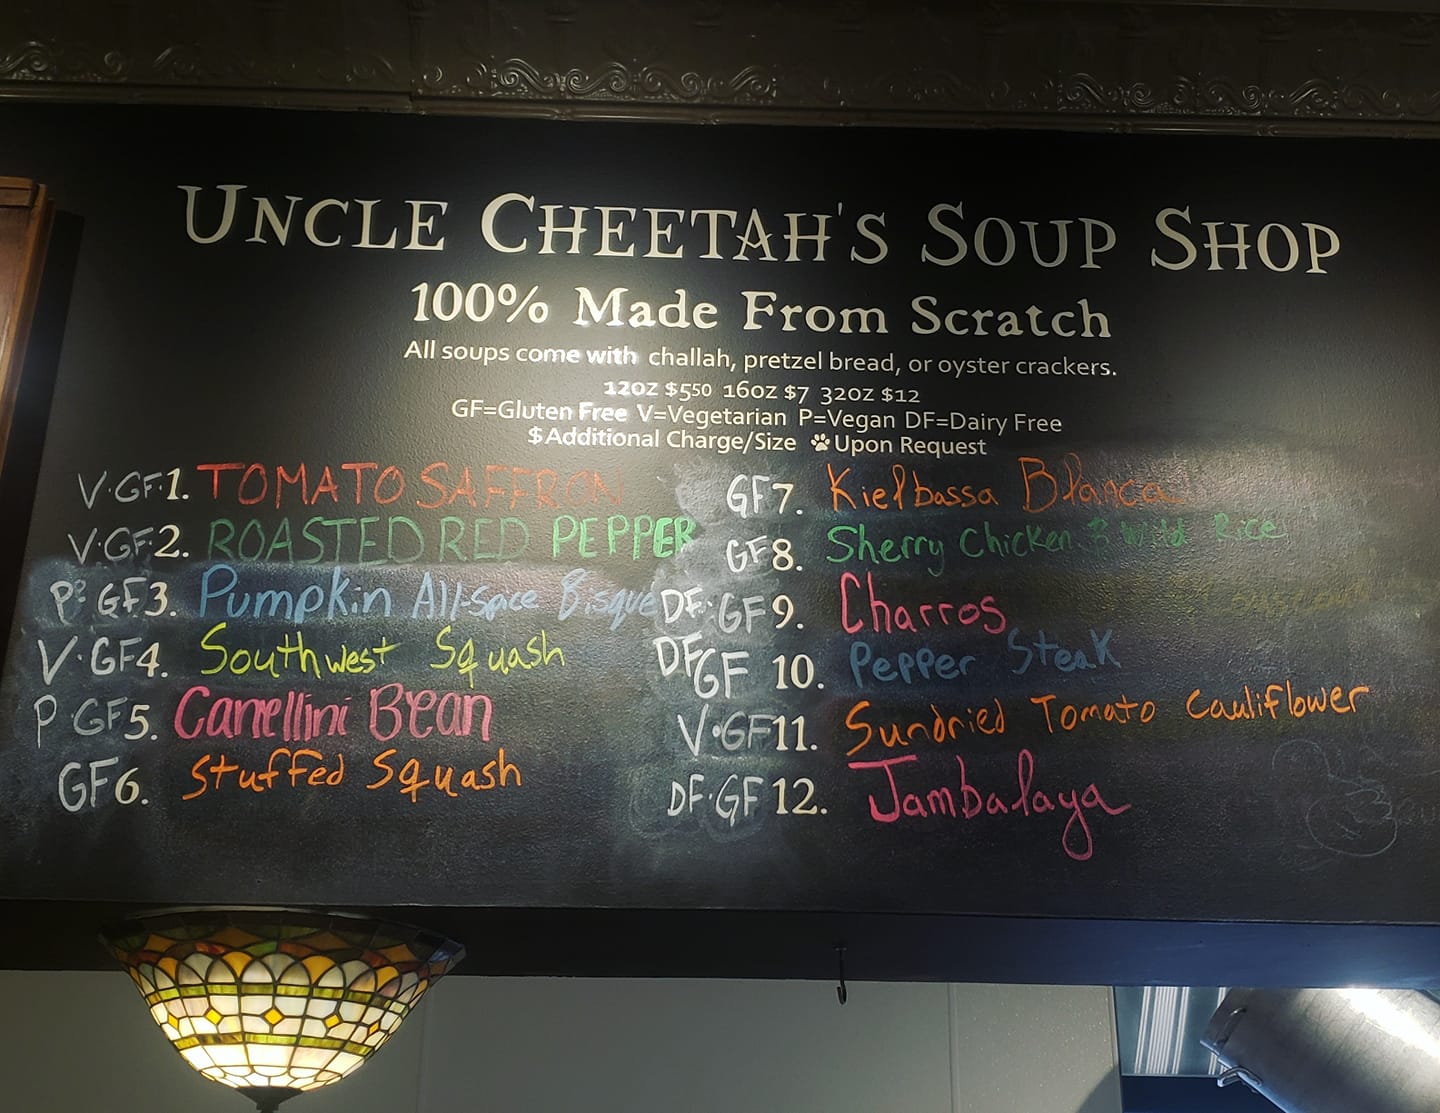 UNCLE CHEETAH'S SOUP SHOP
100% Made From Scratch
All soups come with challah, pretzel bread, or oyster crackers.
12OZ $5.50 16OZ $7 32OZ $12
GF=Gluten Free V=Vegetarian P=Vegan DF=Dairy Free
$Additional Charge/Size 🐾Upon Request
V·GF·1. TOMATO SAFFRON
V·GF·2. ROASTED RED PEPPER
P· GF3. Pumpkin All-Spice Bisque
V·GF4. Southwest Squash
P·GF5. Canellini Bean
GF6. Stuffed Squash
GF7. Kielbassa Blanca
GF8. Sherry Chicken & Wild Rice
DF·GF9. Charros
DF GF 10. Pepper Steak
V·GF11. Sundried Tomato Cauliflower
DF·GF12. Jambalaya